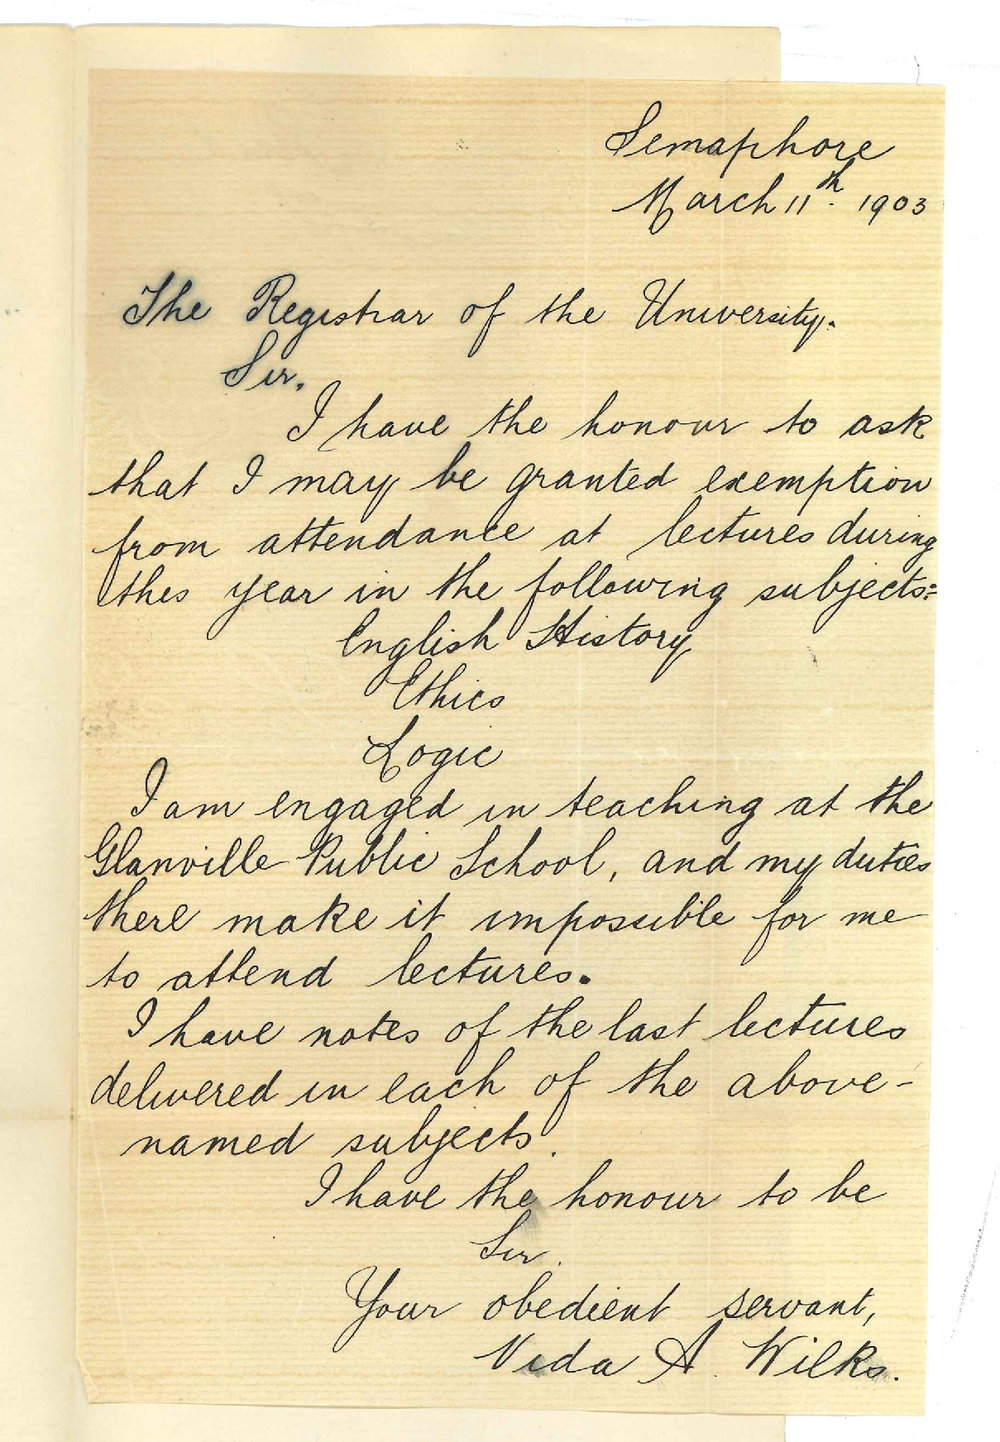 Semaphore
March 11th. 1903
The Registrar of the University.
Sir.
I have the honour to ask
that I may be granted exemption
from attendance at lectures during
this year in the following subjects:-
English History
Ethics
Logic
I am engaged in teaching at the
Glanville Public School, and my duties
there make it impossible for me
to attend lectures.
I have notes of the last lectures
delivered in each of the above-
named subjects.
I have the honour to be
Sir.
Your obedient servant,
Veda A. Wilks.